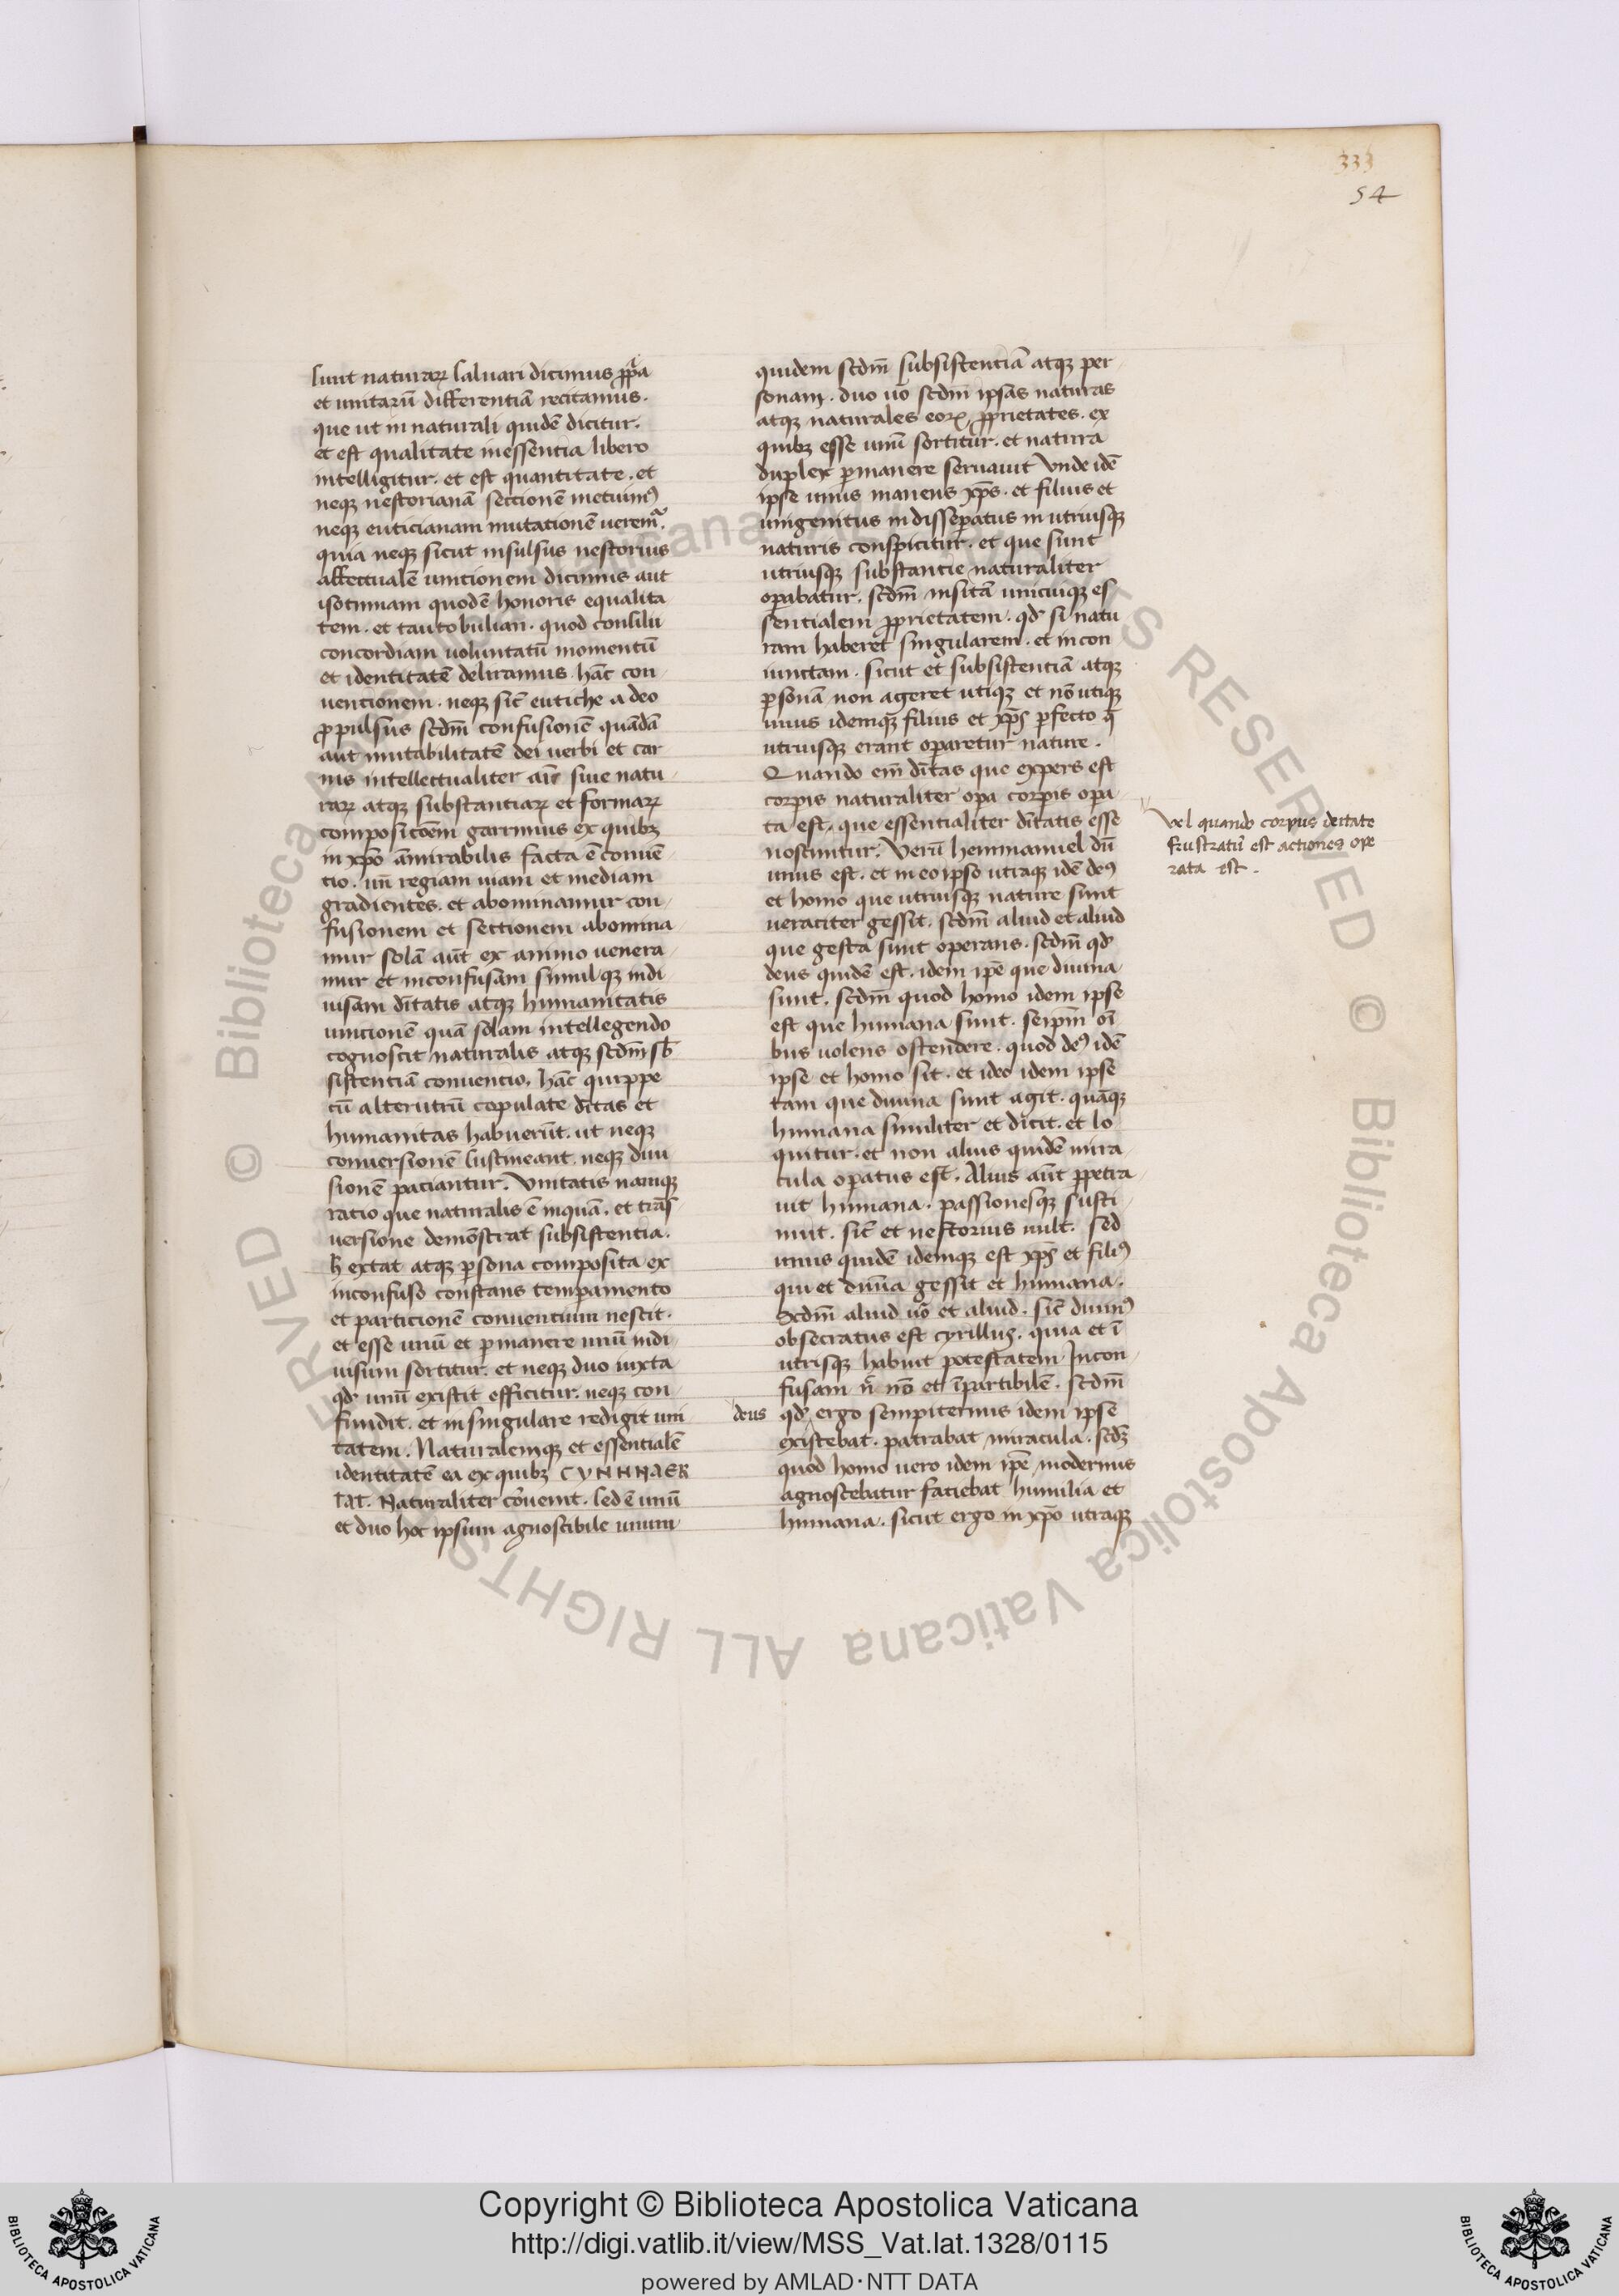 333
54
sunt naturaꝝ saluari dicimus ꝓpͥa
et unitarū differentiā recitamus.
que ut in naturali quidē dicitur.
et est qualitate inessentia libero
intelligitur. et est quantitate. et
neqꝫ nestorianā sectionē metuimꝰ
neqꝫ euticianam mutationē uerem̃.
quia neqꝫ sicut insulsus nestorius
affectualē unitionem dicimus aut
isotimiam quodē honoris equalita
tem. et tautobulian. quod consilii
concordiam uoluntatū momentū
et identitatē deliramus. hāc con
uentionem. neqꝫ sic̄ eutiche a deo
ꝓpulsus scdm̄ confusionē quādā
aut mutabilitatē dei uerbi et car
nis intellectualiter aīe siue natu
raꝝ atqꝫ substantiaꝝ et formaꝝ
compositōem garrimus ex quibꝫ
in xp̄o āmirabilis facta ē conuē
tio. un̄ regiam uiam et mediam
gradientes. et abominamur con
fusionem et sectionem abomina
mur solā aūt ex animo uenera
mur et inconfusam simulqꝫ indi
uisam dītatis atqꝫ humanitatis
unitionē quā solam intellegendo
cognoscit naturalis atqꝫ scdm̄ sb̄
sistentiā conuentio. hāc quippe
cū alterutrū copulate dītas et
humanitas habuerūt. ut neqꝫ
conuersionē sustineant. neqꝫ diui
sionē patiantur. Vnitatis namqꝫ
ratio que naturalis ē inquā. et trās
uersione demōstrat subsistentia.
ħ extat atqꝫ ꝑsona composita ex
inconfuso constans tempamento
et particionē conuentium nescit.
et esse unū et ꝑmanere unū indi
uisum sortitur. et neqꝫ duo iuxta
qd̓ unū existit efficitur. neqꝫ con
fundit. et in singulare redigit uni
tatem. Naturalemqꝫ et essentialē
identitatē ea ex quibꝫ CYNHNAEK
TAT. Naturaliter cōuenit. sed ē unū
et duo hoc ipsum agnoscibile unum
quidem scdm̄ subsistentiā atqꝫ per
sonam. duo uō scdm̄ ipsas naturas
atqꝫ naturales eoꝝ ꝓprietates. ex
quibꝫ esse unū sortitur. et natura
duplex ꝑmanere seruauit Vnde idē
ipse unus manens xp̄s. et filius et
unigenitus indisseꝑatus in utriusqꝫ
naturis conspicitur. et que sunt
utriusqꝫ substantie naturaliter
oꝑabatur. scdm̄ insitā unicuiqꝫ es
sentialem ꝓprietatem. qd̓ si natu
ram haberet singularem. et incon
iunctam. sicut et subsistentiā atqꝫ
ꝑsonā non ageret utiqꝫ et nō utiqꝫ
unus idemqꝫ filius et xp̄s ꝑfecto q̄
utriusqꝫ erant oꝑaretur nature.
Quando em̄ dītas que expers est
corꝑis naturaliter oꝑa corꝑis oꝑa
ta est. que essentialiter dītatis esse
noscuntur. Verū hemmanuel dū
unus est. et in eo ipso utraqꝫ idē deꝰ
et homo que utriusqꝫ nature sunt
ueraciter gessit. scdm̄ aliud et aliud
que gesta sunt operans. scdm̄ qd̓
deus quidē est. idem ip̄e que diuina
sunt. scdm̄ quod homo idem ipse
est que humana sunt. seip̄m oī
bus uolens ostendere. quod deꝰ idē
ipse et homo sit. et ideo idem ipse
tam que diuina sunt agit. quāqꝫ
humana similiter et dicit. et lo
quitur. et non alius quidē mira
cula oꝑatus est. Alius aūt ꝑpetra
uit humana. passionesqꝫ susti
nuit. sic̄ et nestorius uult. sed
unus quidē idemqꝫ est xp̄s et filiꝰ
qui et diuīa gessit et humana.
Scdm̄ aliud uō et aliud. sic̄ diuinꝰ
obsecratus est cyrillus. quia et ī
utrisqꝫ habuit potestatem Incon
fusam n̄ nō et īpartibilē. scdm̄
deus
qd̓ ergo sempiternus idem ipse
existebat. patrabat miracula. scdꝫ
quod homo uero idem ip̄e modernus
agnoscebatur faciebat humilia et
humana. sicut ergo in xp̄o utraqꝫ
Vel quando corpus deitate
frustratū est actiones ope
rata est.
© Biblioteca Apostolica Vaticana ALL RIGHTS RESERVED © Biblioteca Apostolica Vaticana ALL RIGHTS RESERVED
Copyright © Biblioteca Apostolica Vaticana
http://digi.vatlib.it/view/MSS_Vat.lat.1328/0115
powered by AMLAD·NTT DATA
BIBLIOTECA APOSTOLICA VATICANA
BIBLIOTECA APOSTOLICA VATICANA